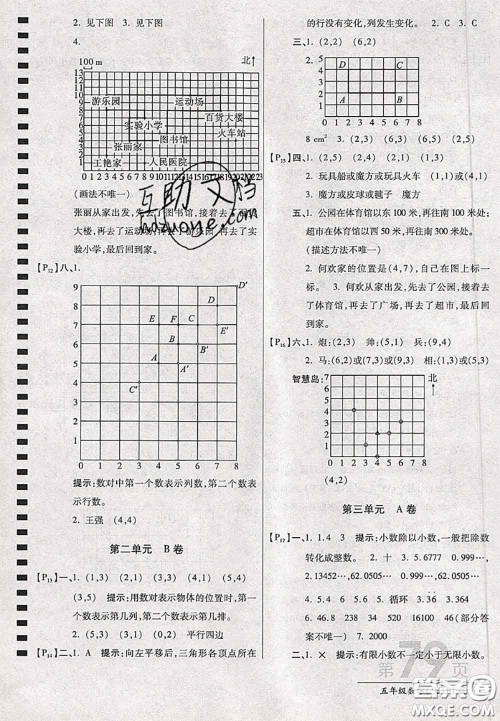 2. 见下图　3. 见下图
4.
100 m　北
13
12
11
10
9
8
7
6
5
4
3
2
1
游乐园　运动场
百货大楼
实验小学　火车站
图书馆
张丽家
王艳家　人民医院
0 1 2 3 4 5 6 7 8 9 10 11 12 13 14 15 16 17 18 19 20 21 22 23
(画法不唯一)
张丽从家出发,先去了图书馆,接着去了百货
大楼,再去了运动场,接着去了游乐园,再去了实
验小学,最后回到家。
【P12】八、1.
D　D′
E　F
A　C　B
A′
9
8
7
6
5
4
3
2
1
0 1 2 3 4 5 6 7 8
提示:数对中第一个数表示列数,第二个数表
示行数。
2. 王强　(4,4)
第二单元　B 卷
【P13】一、1. (1,3)　(2,1)　(3,4)　(4,2)
(3,5)　提示:用数对表示物体的位置时,第一个
数表示第几列,第二个数表示第几排。
2. (5,3)　(2,2)　(4,4)　平行四边
【P14】二、1. A　提示:向左平移后,三角形各顶点所在
的行没有变化,列发生变化。　2. C　3. C
三、1. (2,2)　(6,2)
2.
5
4
3
2
1
D　C
A　B
0 1 2 3 4 5 6 7 8
8 cm²　(2,3)　(6,3)　(6,5)　(2,5)
四、1. (3,2)　(1,3)
2. 玩具船或魔方或玩具火车　(4,1)
3. 魔方或皮球或毽子　魔方
五、1. 公园在体育馆以东 100 米,再往北 100 米处;
超市在体育馆以南 200 米,再往东 300 米处。
(描述方法不唯一)
2. 何欢家的位置是(1,2),自己在图上标一
标。　3. 何欢从家出发,先去了公园,接着去
了体育馆,再去了广场,再去了超市,最后回到
家。
六、1. 炮:(2,3)　帅:(5,1)　兵:(9,4)
2. 马:(6,2)或(7,3)或(9,3)　象:(5,3)或(9,3)
智慧岛:
北
7
6
5
4
3
2
1
0 1 2 3 4 5 6 7 8
第三单元　A 卷
【P17】一、1. 1.4　3　提示:小数除以小数,一般把除数
转化成整数。　2. 十　3. 5.7676　0.999…,
2.13452…,62.0505…　5.7676　0.999…,
62.0505…　4. 9.6　5. 循环　3.
6. 0.05　0.46　234　16　40　46　(部分答
案不唯一)　7. 2000
二、1. ×　提示:有限小数不一定小于无限小数。
第79页
五年级数
互助文档
hdzuoye.com
答案圈
MXQE.COM